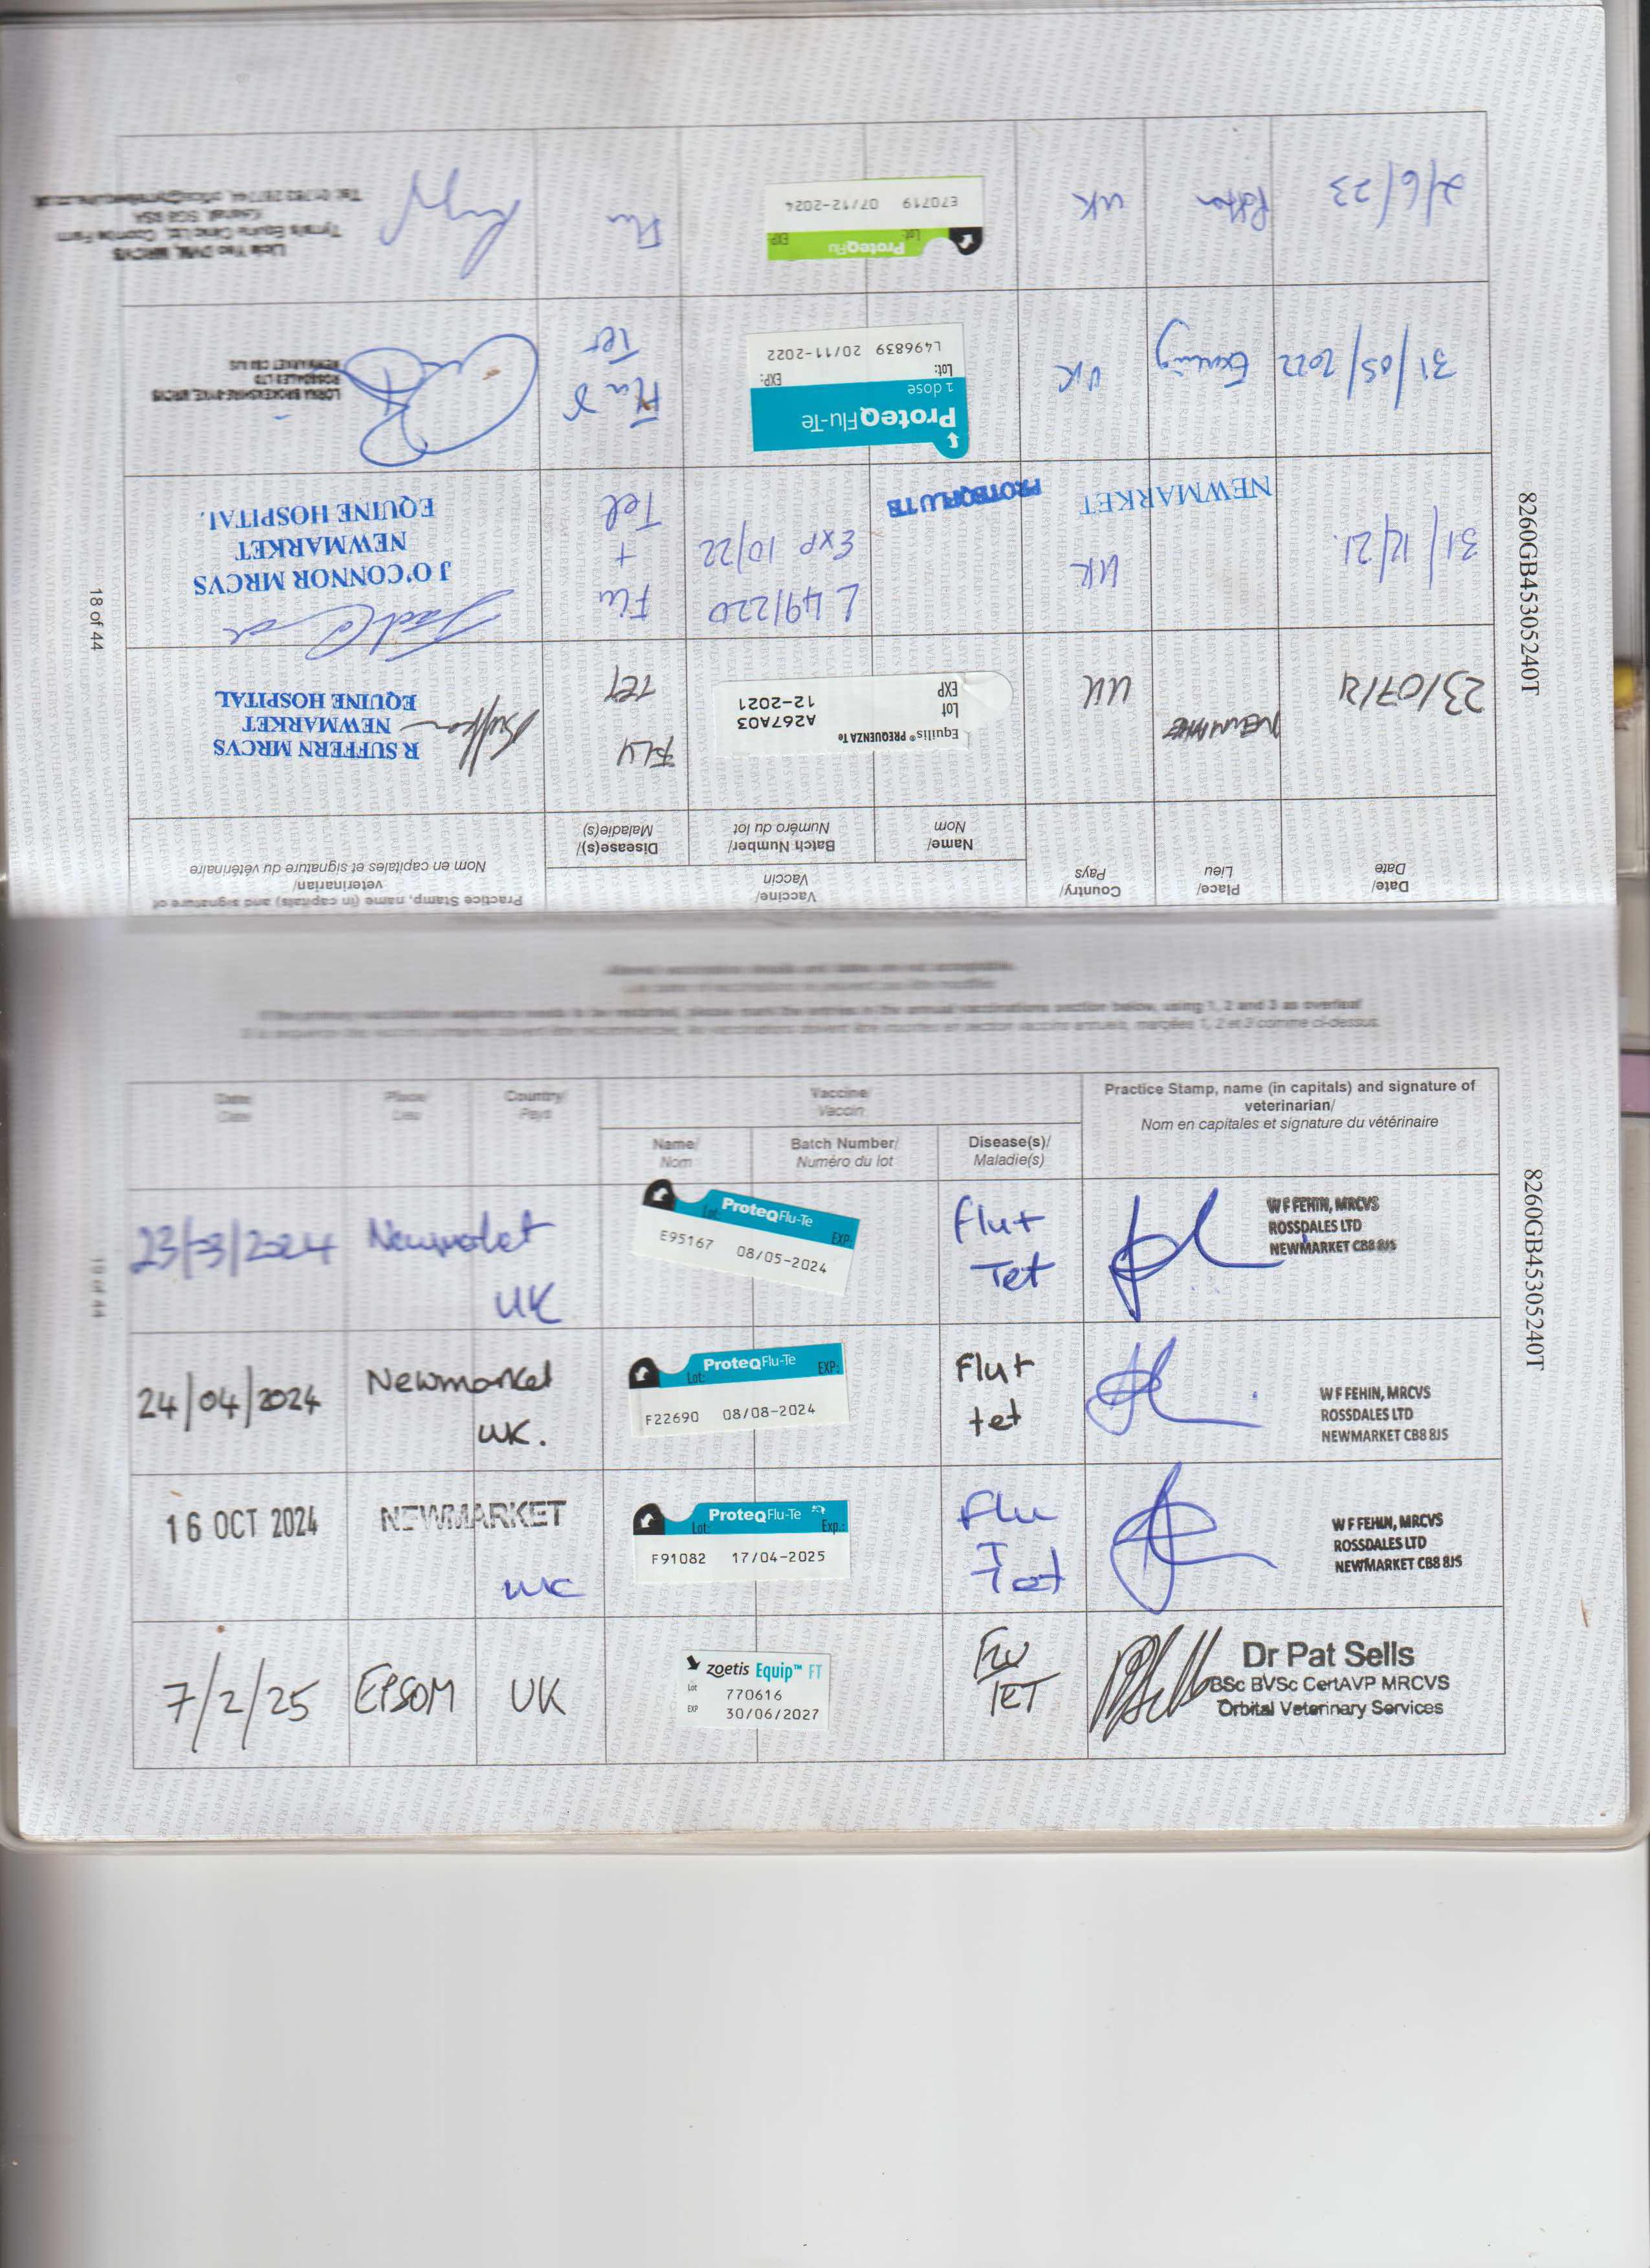 Date/
Date
Place/
Lieu
Country/
Pays
Vaccine/
Vaccin
Name/
Nom
Batch Number/
Numéro du lot
Disease(s)/
Maladie(s)
Practice Stamp, name (in capitals) and signature of
veterinarian/
Nom en capitales et signature du vétérinaire
23/07/21
NEWMARKET
UK
Equilis® PREQUENZA Te
Lot
EXP
A267A03
12-2021
FLU
TET
R SUFFERN MRCVS
NEWMARKET
EQUINE HOSPITAL
31/12/21.
NEWMARKET
UK
PROTEQFLU TE
L491220
Exp 10/22
Flu
+
Tet
J O'CONNOR MRCVS
NEWMARKET
EQUINE HOSPITAL
31/05/2022
Exning
UK
ProteqFlu-Te
1 dose
Lot: EXP:
L496839 20/11/2022
Flu &
Tet
LORNA BROKENSHIRE-DYKE MRCVS
ROSSDALES LTD
NEWMARKET CB8 8JS
2/6/23
UK
ProteqFlu
Lot: EXP:
E70719 07/12-2024
Flu
Tyrrells Equine Clinic Ltd, Coombe Farm
18 of 44
8260GB45305240T
If the primary vaccination sequence needs to be restarted, please mark the entries in the annual vaccinations section below, using 1, 2 and 3 as overleaf
Date/
Date
Place/
Lieu
Country/
Pays
Vaccine/
Vaccin
Name/
Nom
Batch Number/
Numéro du lot
Disease(s)/
Maladie(s)
Practice Stamp, name (in capitals) and signature of
veterinarian/
Nom en capitales et signature du vétérinaire
23/03/2024
Newmarket
UK
ProteqFlu-Te
Lot: EXP:
E95167 08/05-2024
Flu +
Tet
W F FEHIN, MRCVS
ROSSDALES LTD
NEWMARKET CB8 8JS
24/04/2024
Newmarket
UK.
ProteqFlu-Te
Lot: EXP:
F22690 08/08-2024
Flu +
tet
W F FEHIN, MRCVS
ROSSDALES LTD
NEWMARKET CB8 8JS
16 OCT 2024
NEWMARKET
UK
ProteqFlu-Te
Lot: Exp.:
F91082 17/04-2025
Flu
Tet
W F FEHIN, MRCVS
ROSSDALES LTD
NEWMARKET CB8 8JS
7/2/25
EPSOM
UK
zoetis Equip™ FT
Lot 770616
EXP 30/06/2027
FLU
TET
Dr Pat Sells
BSc BVSc CertAVP MRCVS
Orbital Veterinary Services
19 of 44
8260GB45305240T